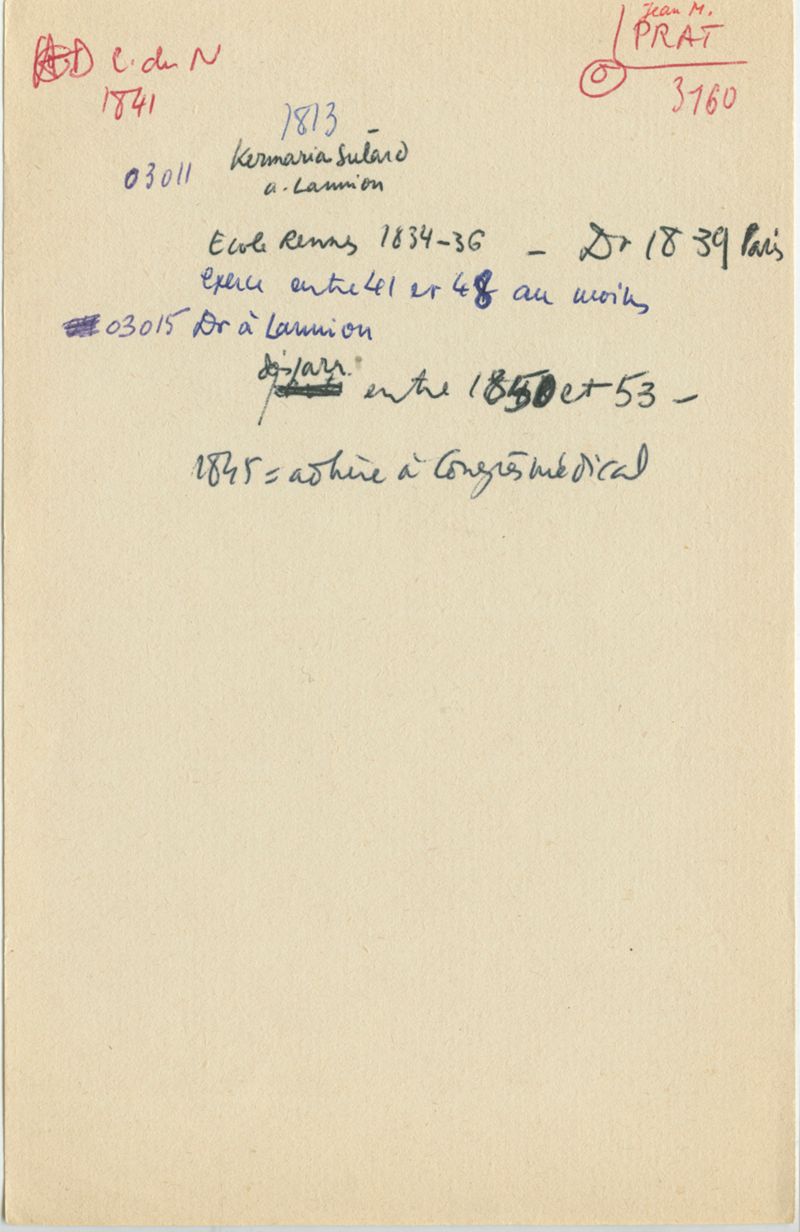 Jean M.
PRAT
AD C. du N
1841
0
3160
1813
03011 Kermaria Sulard
a. Lannion
Ecole Rennes 1834-36 - Dr 1839 Paris
exerce entre 41 et 48 au moins
03015 Dr à Lannion
dispar. entre 1850 et 53 -
1845 = adhère à Congrès médical